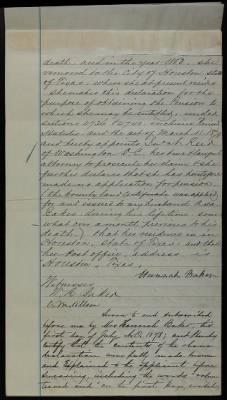 death, and in the year 1873, she
removed to the City of Houston, State
of Texas, where she at present resides
She makes this declaration for the
purpose of obtaining the Pension to
which she may be entitled, under
sections 4736 to 4740, Revised
Statutes and the act of March 9, 1878
and hereby appoints
of Washington D.C. her true & lawful
attorney to prosecute her claim & she
further declares that she has heretofore
made no application for pension,
(the bounty land was applied
for and issued to my husband
Baker, during his lifetime, some
what over a month previous to his
death,) that her residence is in
Houston, State of Texas, and that
her Post office address is
Houston, Texas.
Hannah Baker
Witnesses
W. R. Baker
Sworn to and subscribed
before me by Mrs Hannah Baker, this
first day of July A.D. 1878; and I hereby
certify that the contents of the above
declaration were fully made known
and explained to the applicant before
swearing, including the words
erased and on first page